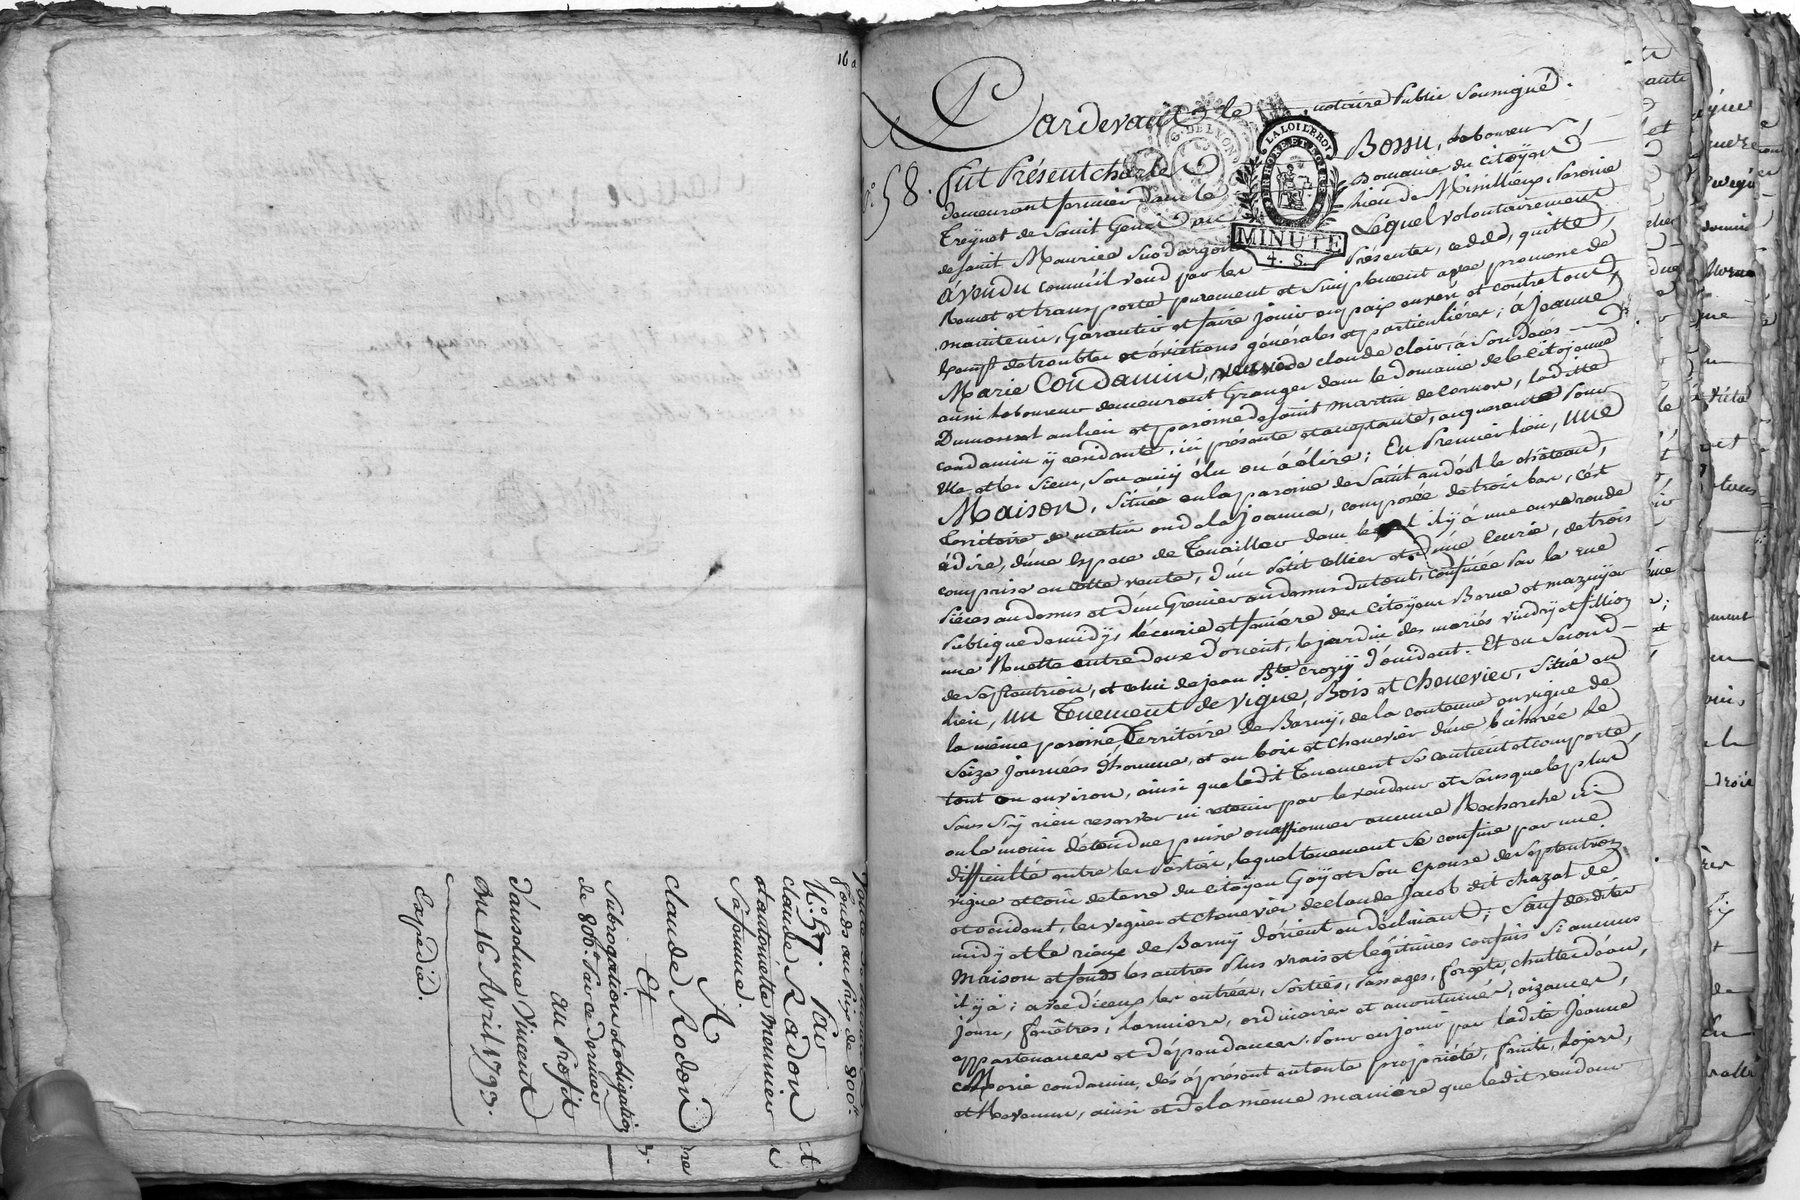 16
fonds au Prix de 800lt.
N.° 57. Par
claude Radon et
d'antoinette meunier
Sa femme.
A
claude Rodon
Et
Subrogation et obligation
de 800lt. Par ce dernier
au Profit
d'ansolme Vincent
Du 16 Avril 1793.
Expédié.
Pardevant le notaire Public Soussigné.
N.° 58. fut Présent charles Bossu, laboureur
demeurant fermier dans le Domaine du Citoyen
Treynet de Saint Genis au lieu de Missillieux, Paroisse
de Saint Maurice Sur dargoire Lequel volontairement
à vendu comm'il vend par les Présentes, cedde, quitte,
Remet et transporte purement et Simplement avec promesse de
maintenir, Garantir et faire jouir en paix envers et contre tous,
Exempt de troubles et évictions générales et particulières; à Jeanne
Marie Condamin, veuve de claude clair, à Son décès
aussi laboureur demeurant Granger dans le Domaine de la Citoyenne
Dumonsset au lieu et paroisse de Saint martin de Cornas, ladite
condamin ÿ résidante, ici présente et acceptante, acquerante Pour
elle et les Siens, Son amÿ élu ou à élire; En Premier lieu, Une
Maison, Située en la paroisse de Saint andéol le château,
Territoire de matin ou de la Joanna, composée de trois bas, c'est
à dire, d'une Espace de Tenailler dans lequel il ÿ à une cuve ronde
comprise en cette vente, d'un Petit cellier et d'une Ecurie, de trois
Pièces au dessus et d'un Grenier au dessus du tout, confinée Par la rue
Publique de midÿ, l'écurie et fenière des Citoyens Barne et mazuÿer
une Ruette entre deux d'orient, le jardin des mariés vindrÿ et fillion
de Septentrion, et celui de jean Bte. crozÿ d'occident. Et en Second
lieu, un Tenement de vigne, Bois et Chenevier, Situé en
la même paroisse Territoire de Barnÿ, de la contenue en vigne de
Seize journées d'homme, et en bois et chenevier d'une bichérée le
tout ou environ, ainsi que ledit Tenement Se contient et comporte,
Sans S'ÿ rien reserver ni retenir par le vendeur et Sans que le plus
ou le moins d'étendue puisse occasionner aucune Recherche ni
difficulté entre les Parties, lequel tenement Se confine par une
vigne et coin de terre du citoyen Goÿ et Son Epouse de Septentrion
et occident, les vignes et chenevier de claude Jacob dit chazal de
midÿ et le rieux de Barnÿ d'orient en déclinant; Sauf desdites
maison et fonds les autres Plus vrais et légitimes confins Si aucuns
il ÿ à; avec d'iceux les entrées, Sorties, Passages, forgets, chutte d'eau,
jours, fenêtres, larmiers, ordinaires et accoutumés, aizances,
appartenances et dépendances. Pour en jouir par ladite Jeanne
Marie condamin, dès à présent en toute propriété, fruits, Loyers,
et Revenus, ainsi et de la même manière que ledit vendeur
G. DE LYON
LA LOI LE ROI
MINUTE
4. S.